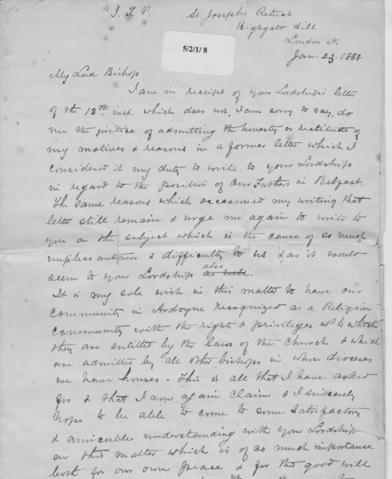 J. X. P.
St Joseph's Retreat
Highgate Hill
London N.
5/2/1/8
Jan. 23. 188
My Lord Bishop
I am in receipt of your Lordship's letter
of the 18th inst. which does not, I am sorry to say, do
me the justice of admitting the honesty or rectitude of
my motives & reasons in a former letter which I
considered it my duty to write to your Lordship
in regard to the position of our Fathers in Belfast.
The same reasons which occasioned my writing that
letter still remain & urge me again to write to
you on the subject which is the cause of so much
unpleasantness & difficulty to us & as it would
seem to your Lordship also
It is my sole wish in this matter to have our
community in Ardoyne recognized as a Religious
community with the rights & privileges to which
they are entitled by the laws of the Church & which
are admitted by all other bishops in whose dioceses
we have houses. This is all that I have asked
for & that I now again claim & I sincerely
hope to be able to come to some satisfactory
& amicable understanding with your Lordship
on this matter which is of so much importance
both for our own peace & for the good will